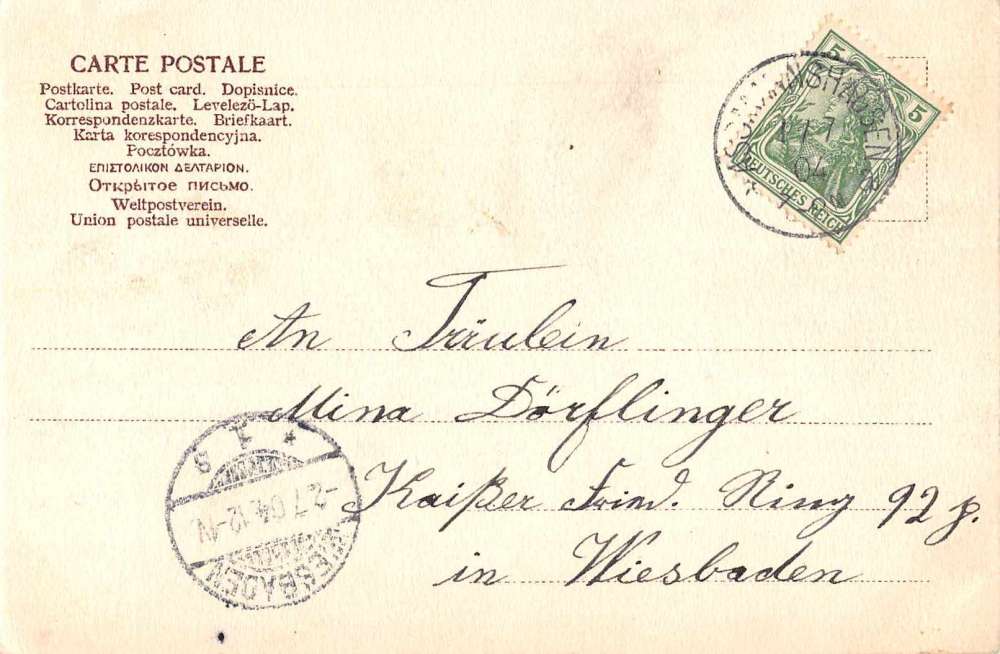 CARTE POSTALE
Postkarte. Post card. Dopisnice.
Cartolina postale. Levelezö-Lap.
Korrespondenzkarte. Briefkaart.
Karta korespondencyjna.
Pocztówka.
ΕΠΙΣΤΟΛΙΚΟΝ ΔΕΛΤΑΡΙΟΝ.
Открытое письмо.
Weltpostverein.
Union postale universelle.
5 5
DEUTSCHES REICH
1 7
04
An Fräulein
Mina Dörflinger
Kaißer Fried. Ring 92 p.
in Wiesbaden
* 1 S
-2.7.04.12-1V.
WIESBADEN